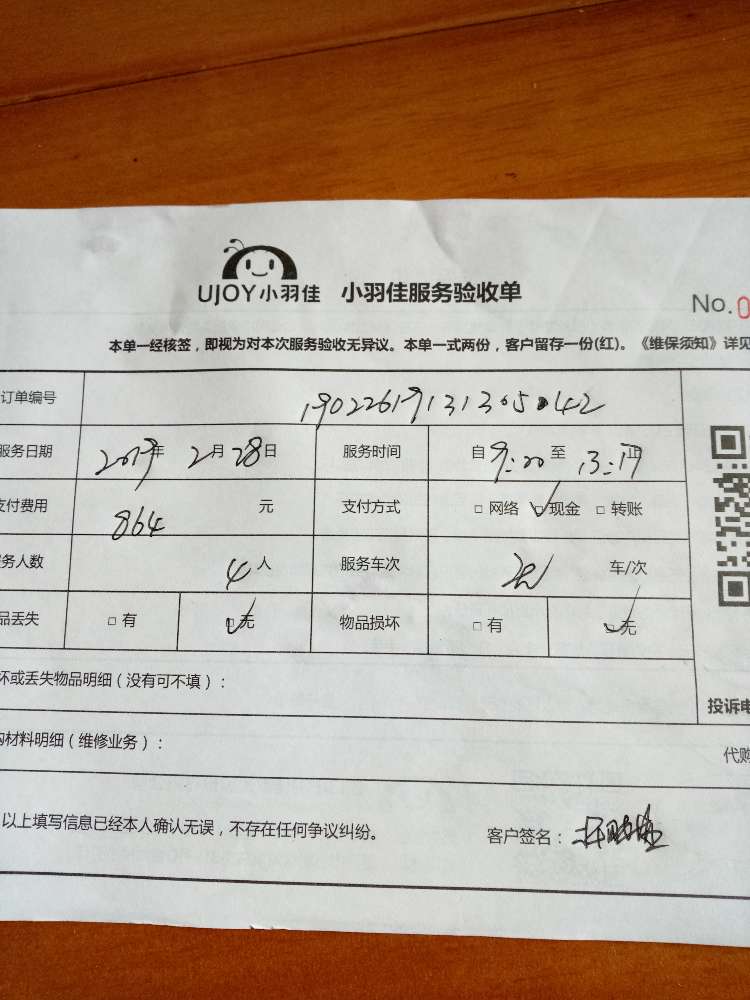 UJOY小羽佳 小羽佳服务验收单
No.0
本单一经核签，即视为对本次服务验收无异议。本单一式两份，客户留存一份(红)。《维保须知》详见
订单编号 19022619131305042
服务日期 2019年 2月 28日 服务时间 自 9:00 至 13:17 止
支付费用 864 元 支付方式 □ 网络 ☑ 现金 □ 转账
务人数 4人 服务车次 车/次
品丢失 □ 有 ☑ 无 物品损坏 □ 有 ☑ 无
坏或丢失物品明细（没有可不填）：
投诉电
购材料明细（维修业务）：
代购
以上填写信息已经本人确认无误，不存在任何争议纠纷。
客户签名：